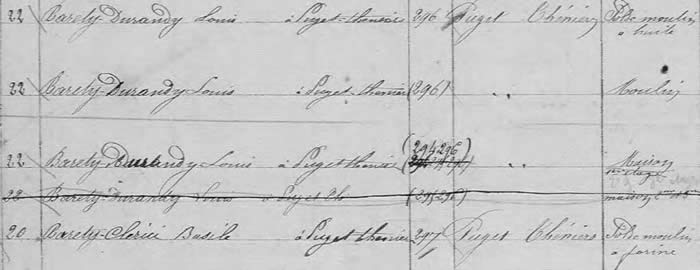 22 Barety-Durandy Louis à Puget-thenier 296 Puget Théniers Sol de moulin
à huile
22 Barety-Durandy Louis à Puget-thenier (296) " Moulin
(294 296)
22 Barety Durandy Louis à Puget thenier " Maison
1er étage
22 Barety-Durandy Louis à Puget Th. (295 296) maison
20 Barety-Clérici Basile à Puget thenier 297 Puget Théniers Sol de moulin
à farine